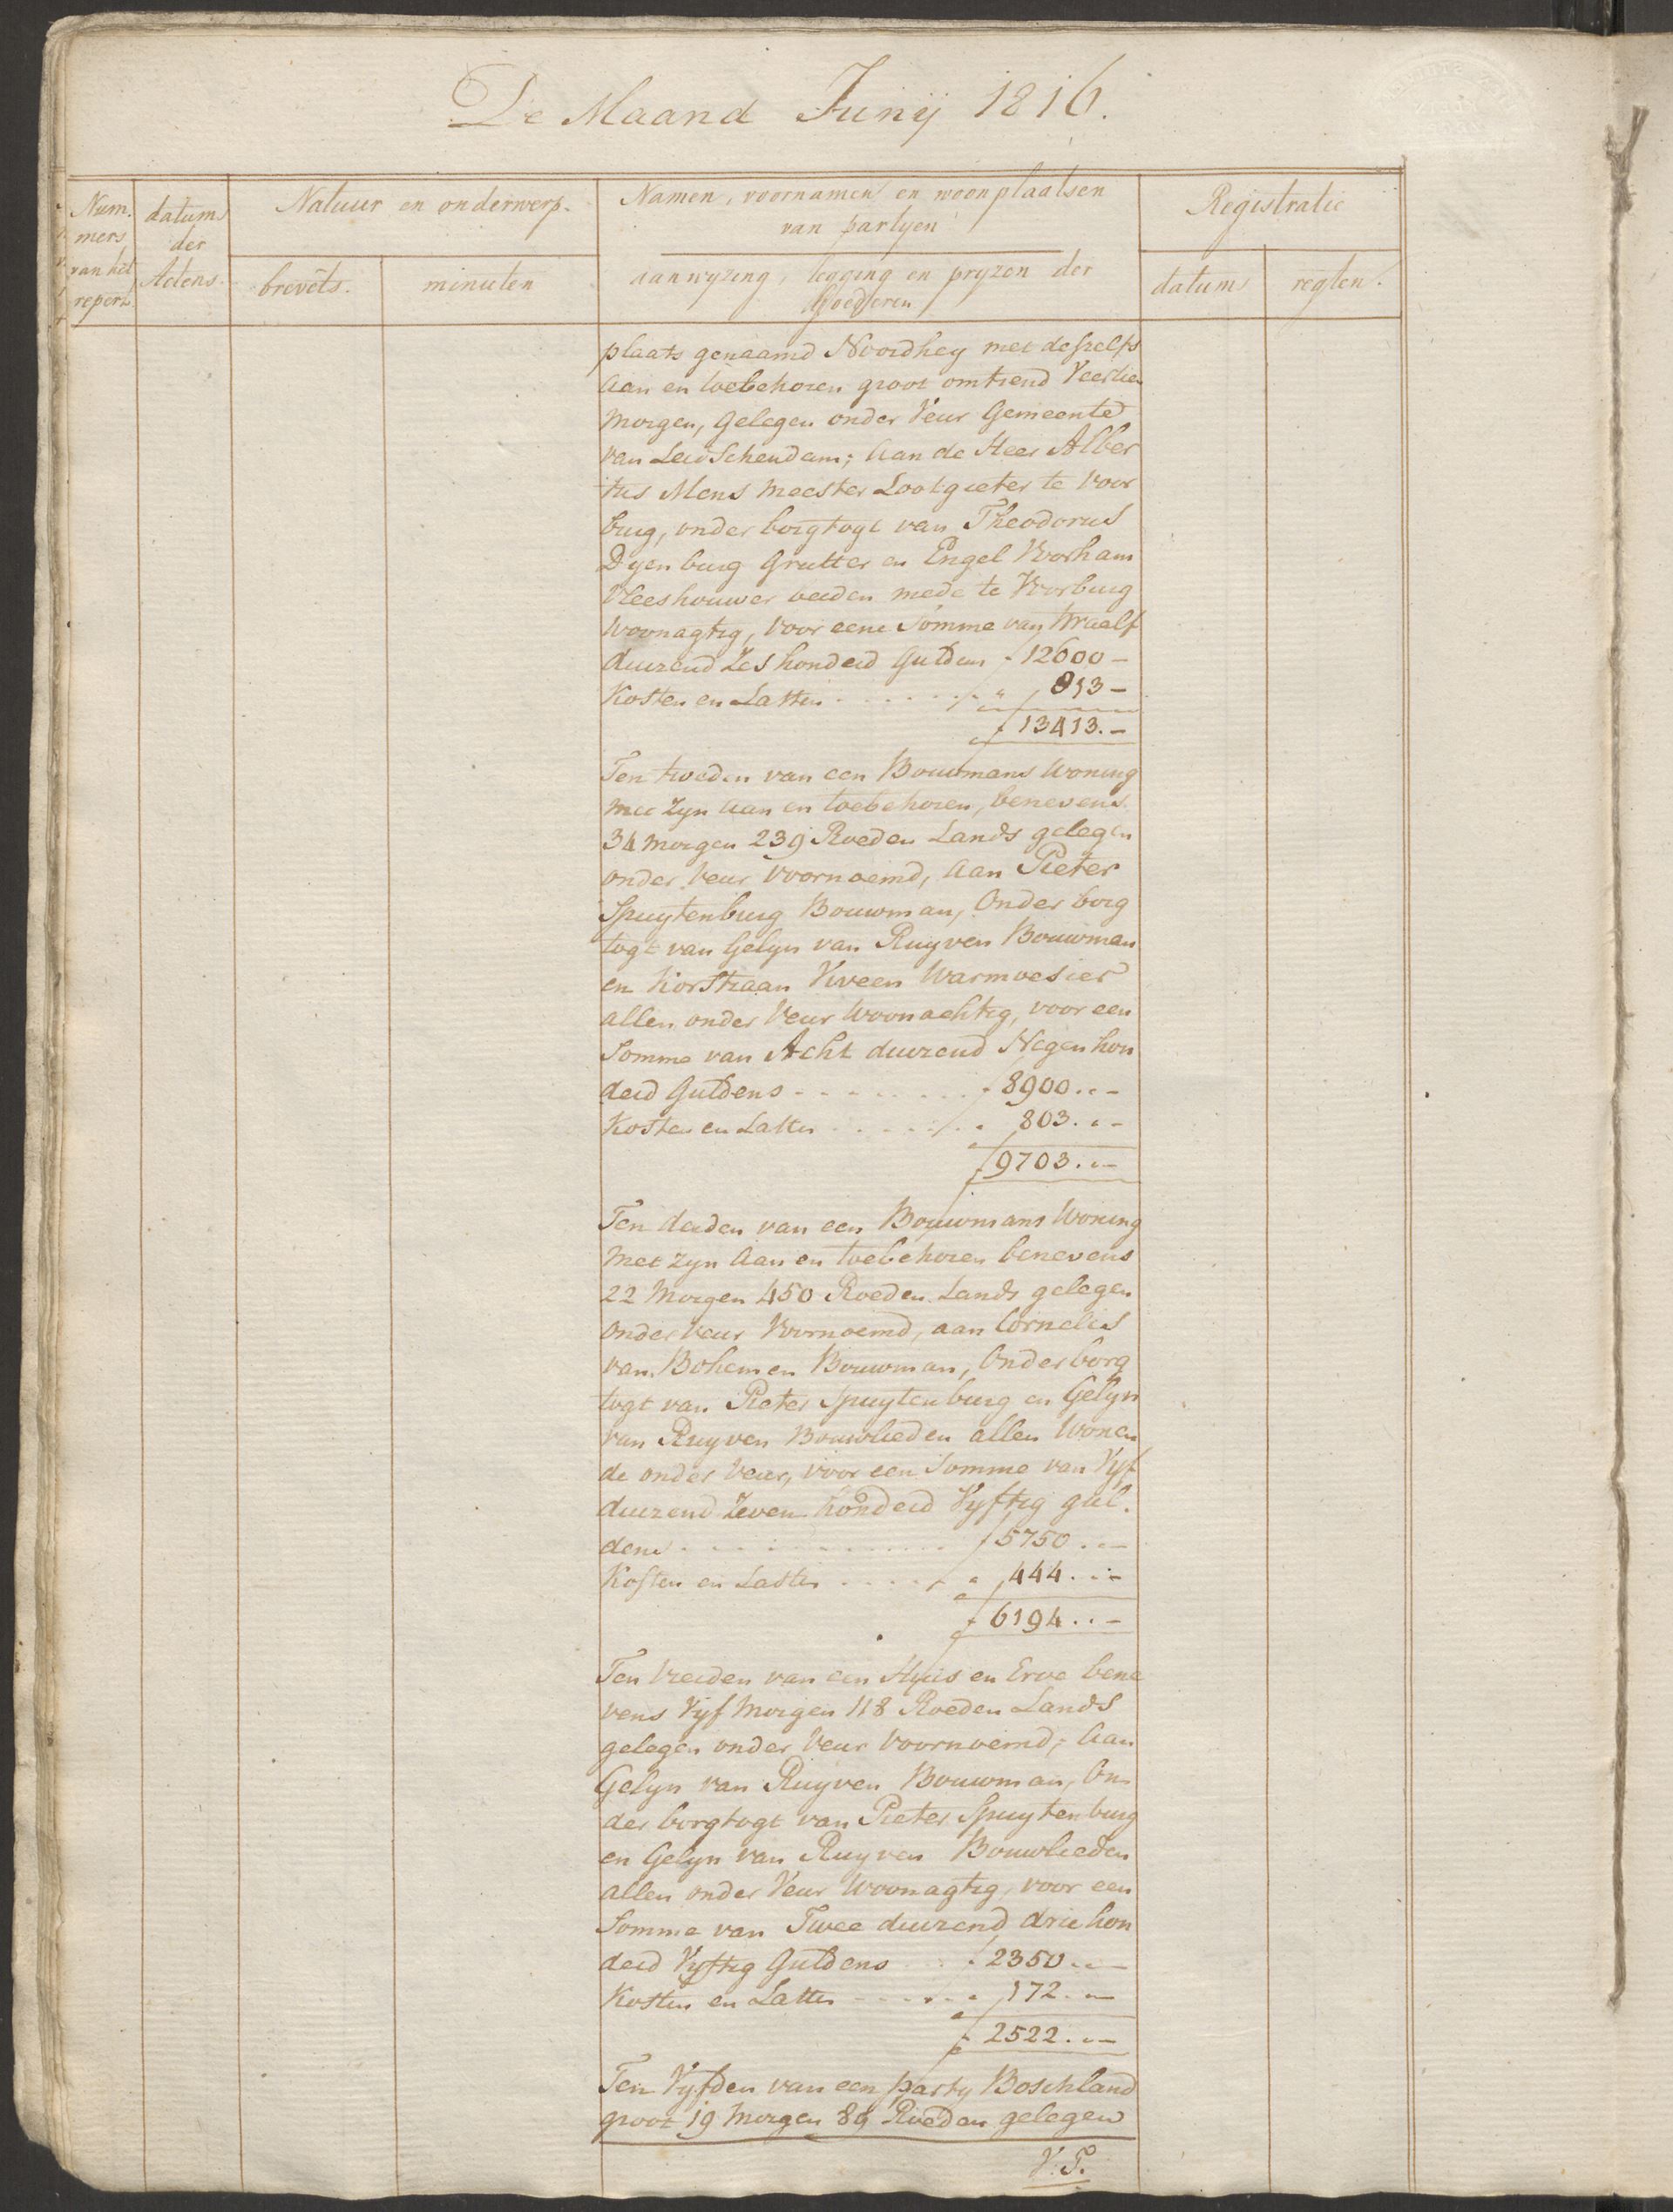 De Maand Junij 1816.
Num.
mers
van het
repert.
datums
der
Actens.
Natuur en onderwerp.
brevêts.
minuten
Namen, voornamen en woonplaatsen
van partyen
aanwyzing, legging en pryzen der
Goederen
Registratie
datums
regten.
plaats genaamd Noordhey met deszelfs
aan en toebehoren groot omtrend Veertien
morgen, gelegen onder Veur Gemeente
van Leidschendam; aan de Heer Alber
tus Mens meester Lootgieter te Voor
burg, onder borgtogt van Theodorus
Dyenburg Grutter en Engel Voorham
Vleeshouwer beiden mede te Voorburg
woonagtig, voor eene Somme van twaalf
duizend Zes honderd Guldens f 12600 -
Kosten en Lasten . . . . . . . " 813 -
f 13413. -
Ten tweeden van een Bouwmans Woning
met zyn aan en toebehoren, benevens
34 morgen 239 Roeden Lands gelegen
onder Veur voornoemd, aan Pieter
Spuytenburg Bouwman, Onder borg
togt van Gelyn van Ruyven Bouwman
en Korstiaan Kveen Warmoesier
allen onder Veur Woonachtig, voor een
Somme van Acht duizend Negen hon
derd Guldens - - - - - - - - f 8900 . . -
Kosten en Lasten . . . . . . " 803 . . -
f 9703 . . -
Ten derden van een Bouwmans Woning
met zyn aan en toebehoren benevens
22 Morgen 450 Roeden Lands gelegen
onder Veur Voornoemd, aan Cornelis
van Bohemen Bouwman, Onder borg
togt van Pieter Spuytenburg en Gelyn
van Ruyven Bouwlieden allen Wonen
de onder Veur, voor een Somme van Vyf
duizend Zeven honderd Vyftig gul.
dens . . . . . . . . . . . f 5750 . . -
Kosten en Lasten . . . . . " 444 . . -
f 6194 . . -
Ten Vierden van een Huis en Erve bene
vens Vyf Morgen 118 Roeden Lands
gelegen onder Veur Voornoemd; aan
Gelyn van Ruyven Bouwman, On
der borgtogt van Pieter Spuytenburg
en Gelyn van Ruyven Bouwlieden
allen onder Veur Woonagtig, voor een
Somme van Twee duizend drie hon
derd Vyftig Guldens . . f 2350 . . -
Kosten en Lasten - - - . . " 172 . . -
f 2522 . . -
Ten Vyfden van een party Boschland
groot 19 Morgen 88 Roeden gelegen
V. T.